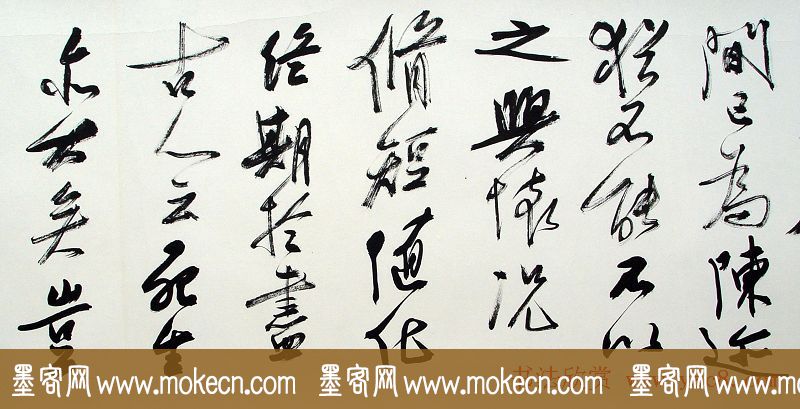 間已為陳迹
猶不能不以
之興懷況
脩短隨化
終期於盡
古人云死生
亦大矣豈
墨客网 www.mokecn.com 墨客网 www.mokecn.com 墨客网 www.mokecn.com
书法欣赏